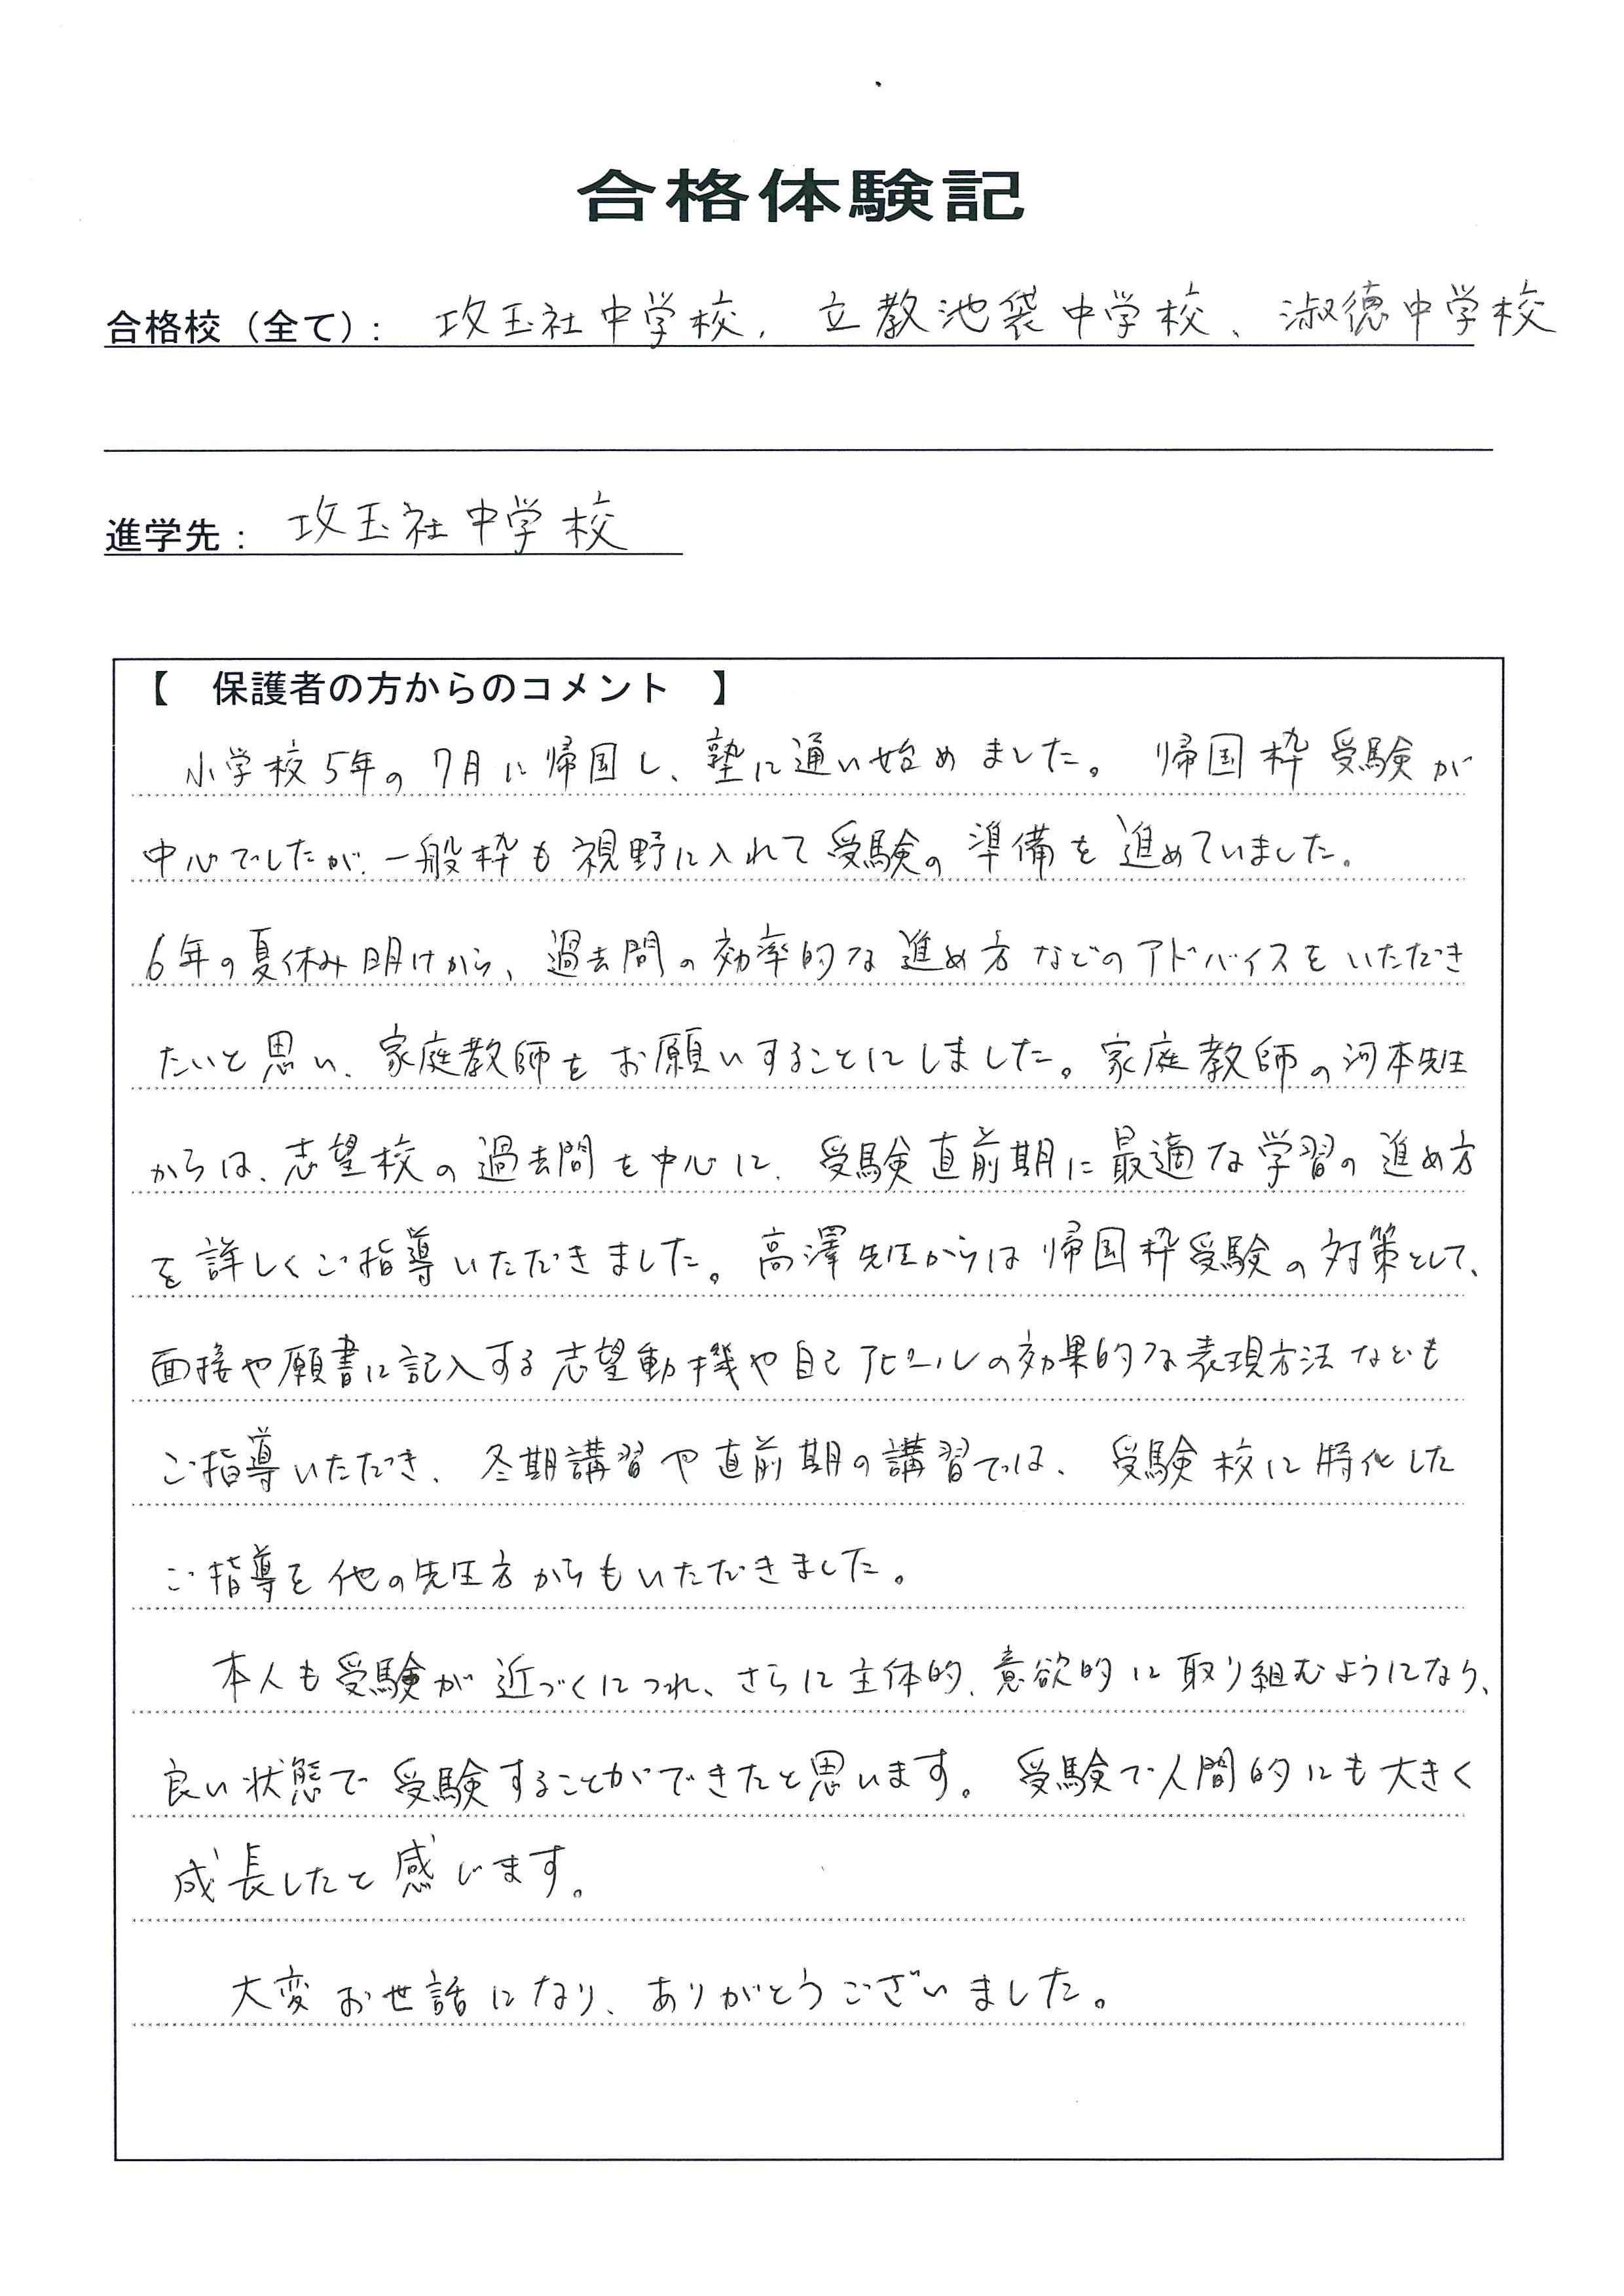 合格体験記
合格校（全て）： 攻玉社中学校、立教池袋中学校、淑徳中学校
進学先： 攻玉社中学校
【　保護者の方からのコメント　】
小学校5年の7月に帰国し、塾に通い始めました。帰国枠受験が
中心でしたが、一般枠も視野に入れて受験の準備を進めていました。
6年の夏休み明けから、過去問の効率的な進め方などのアドバイスをいただき
たいと思い、家庭教師をお願いすることにしました。家庭教師の河本先生
からは、志望校の過去問を中心に、受験直前期に最適な学習の進め方
を詳しくご指導いただきました。高澤先生からは帰国枠受験の対策として、
面接や願書に記入する志望動機や自己アピールの効果的な表現方法なども
ご指導いただき、冬期講習や直前期の講習では、受験校に特化した
ご指導を他の先生方からもいただきました。
本人も受験が近づくにつれ、さらに主体的、意欲的に取り組むようになり、
良い状態で受験することができたと思います。受験で人間的にも大きく
成長したと感じます。
大変お世話になり、ありがとうございました。